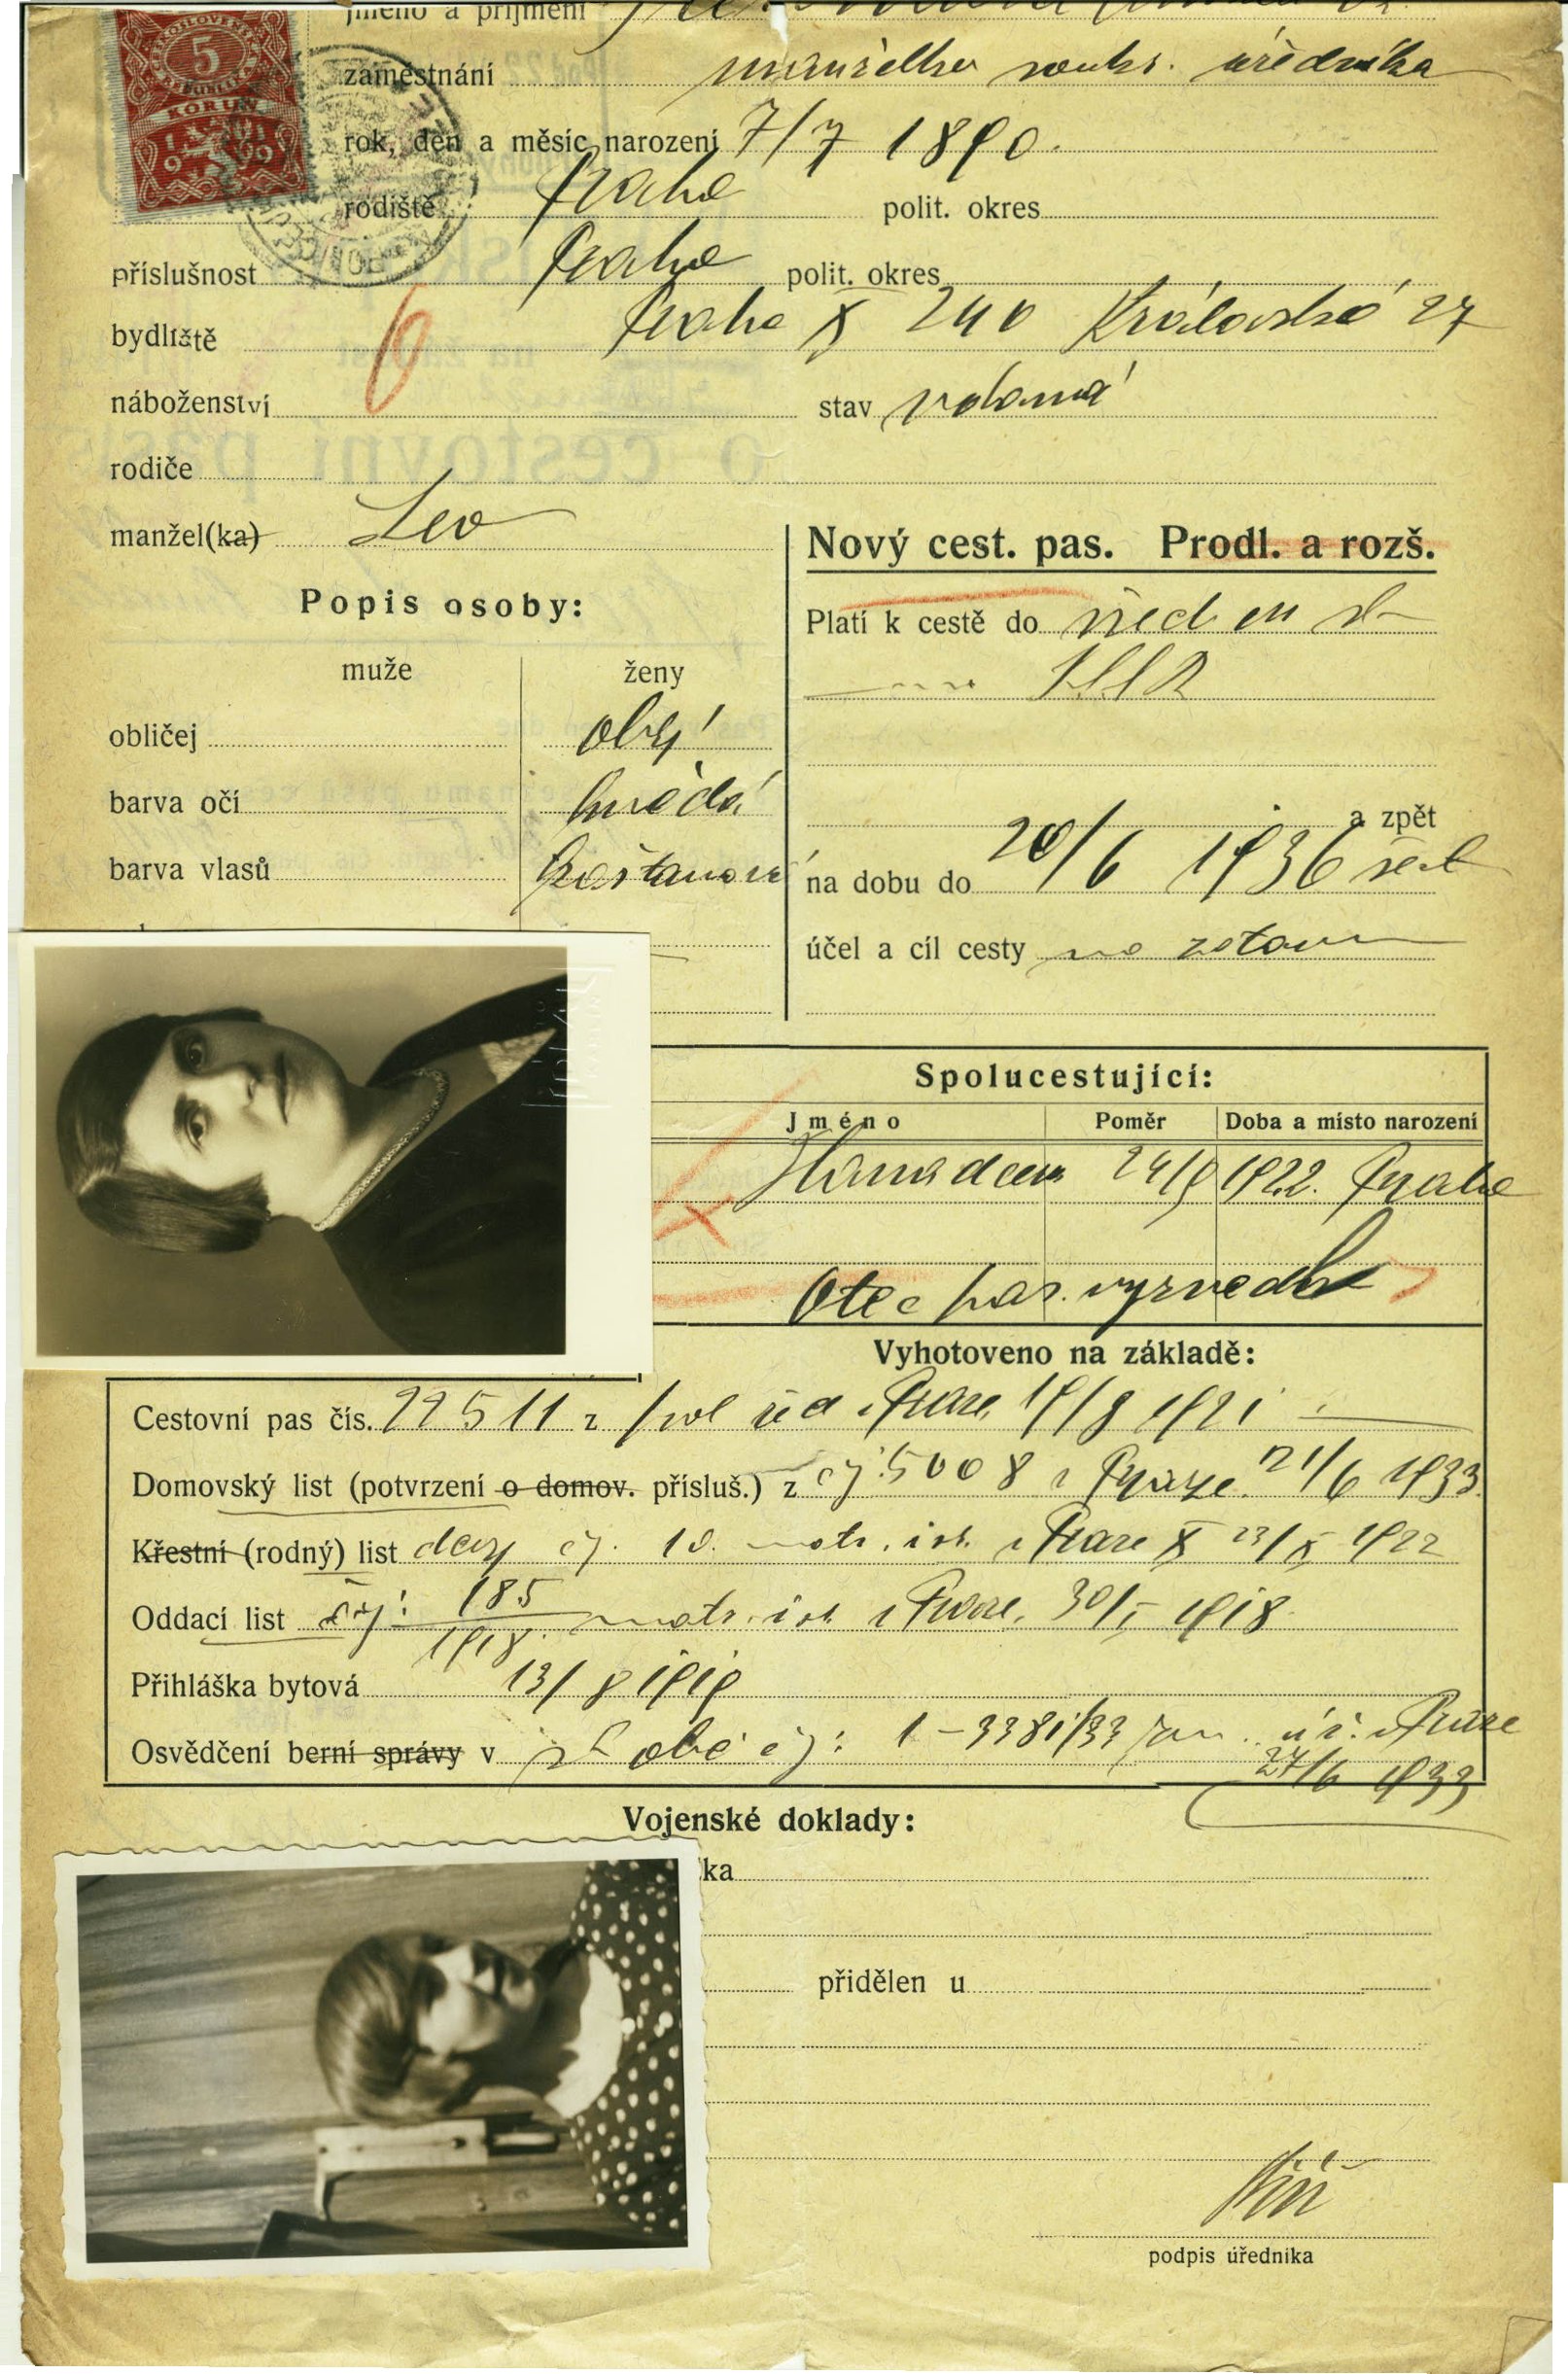 jméno a příjmení
5
KORUN
1919
zaměstnání manželka soukr. úředníka
rok, den a měsíc narození 7/7 1890.
rodiště Praha polit. okres
příslušnost Praha polit. okres
bydliště Praha X 240 Královská 27
6
náboženství stav vdaná
rodiče
manžel(ka) Leo
Nový cest. pas. Prodl. a rozš.
Popis osoby:
Platí k cestě do
muže ženy
obličej obly
barva očí hnědá
barva vlasů kaštanové
a zpět
na dobu do 20/6 1936
účel a cíl cesty na zotav
Spolucestující:
Jméno Poměr Doba a místo narození
Hana dcera 24/9 1922. Praha
Otec pas. vyzvedl
Vyhotoveno na základě:
Cestovní pas čís. 22511 z pol řed v Praze 19/8 1921
Domovský list (potvrzení o domov. přísluš.) z čj: 5008 v Praze. 21/6 1933.
Křestní (rodný) list dcery čj. 10. matr. isr. v Praze X 23/X 1922
Oddací list čj: 185/1918. matr. isr. v Praze. 30/I 1918.
Přihláška bytová 13/8 1919
Osvědčení berní správy v obě čj: 1-3381/33 v Praze
27/6 1933
Vojenské doklady:
ka
přidělen u
podpis úředníka